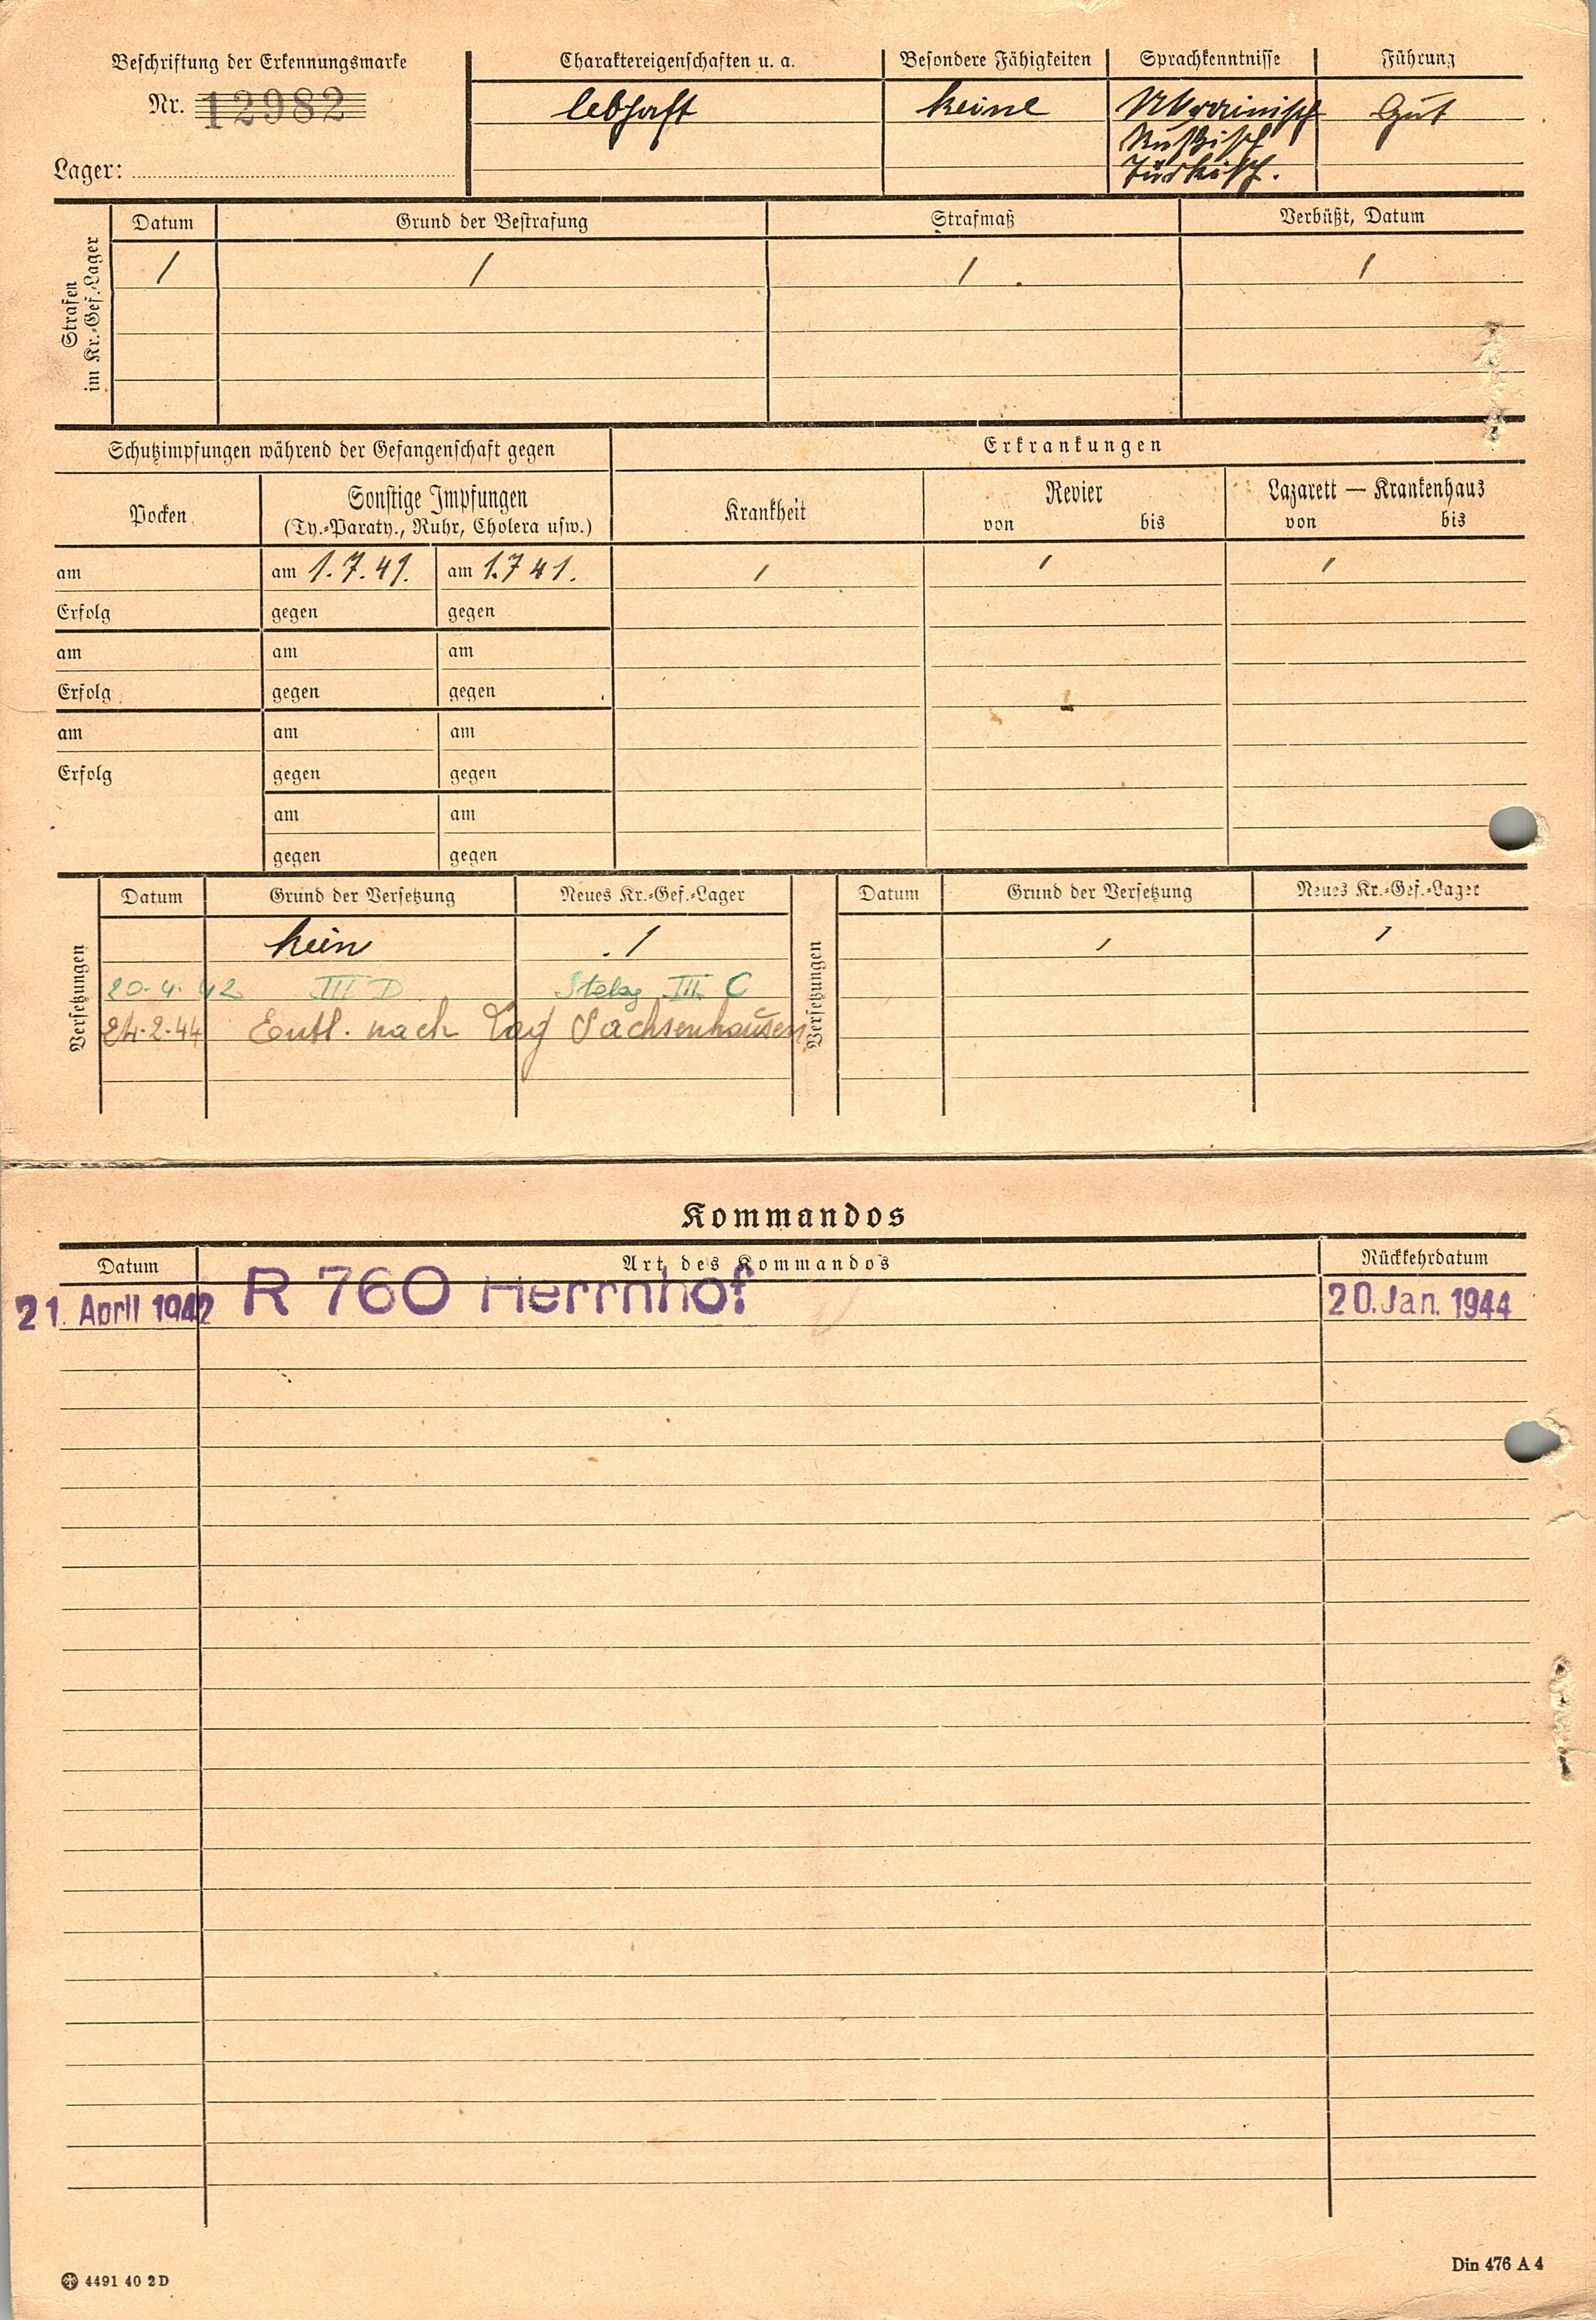 Beschriftung der Erkennungsmarke
Nr. 12982
Lager:
Charaktereigenschaften u. a.
lebhaft
Besondere Fähigkeiten
keine
Sprachkenntnisse
Ukrainisch
Russisch
Türkisch.
Führung
Gut
Strafen
im Kr.-Gef.-Lager
Datum Grund der Bestrafung Strafmaß Verbüßt, Datum
/ / / /
Schutzimpfungen während der Gefangenschaft gegen
Pocken
Sonstige Impfungen
(Ty.-Paraty., Ruhr, Cholera usw.)
am am 1.7.41. am 1.7 41.
Erfolg gegen gegen
am am am
Erfolg gegen gegen
am am am
Erfolg gegen gegen
am am
gegen gegen
Erkrankungen
Krankheit
Revier
von bis
Lazarett — Krankenhaus
von bis
/ / /
Versetzungen
Datum Grund der Versetzung Neues Kr.-Gef.-Lager
kein . /
20.4.42 III D Stalag III C
24.2.44 Entl. nach Lag Sachsenhausen
Versetzungen
Datum Grund der Versetzung Neues Kr.-Gef.-Lager
/ /
Kommandos
Datum Art des Kommandos Rückkehrdatum
21. April 1942 R 760 Herrnhof 20. Jan. 1944
4491 40 2D
Din 476 A 4